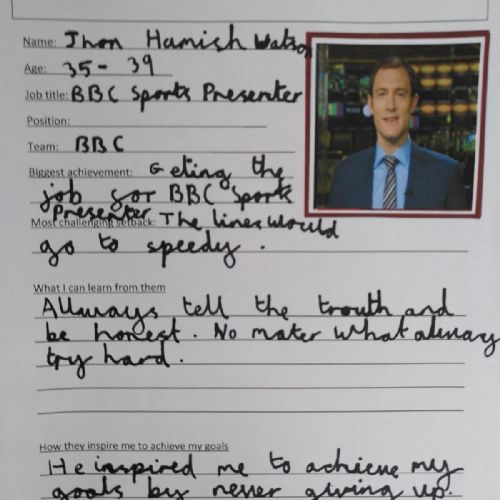 Name: Jhon Hamish Watson
Age: 35 - 39
Job title: BBC Sports Presenter
Position:
Team: BBC
Biggest achievement: Geting the
job for BBC Sports
Presenter
Most challenging setback: The lines would
go to speedy.
What I can learn from them
Allways tell the trouth and
be honest. No mater what always
try hard.
How they inspire me to achieve my goals
He inspired me to achieve my
goals by never giving up.